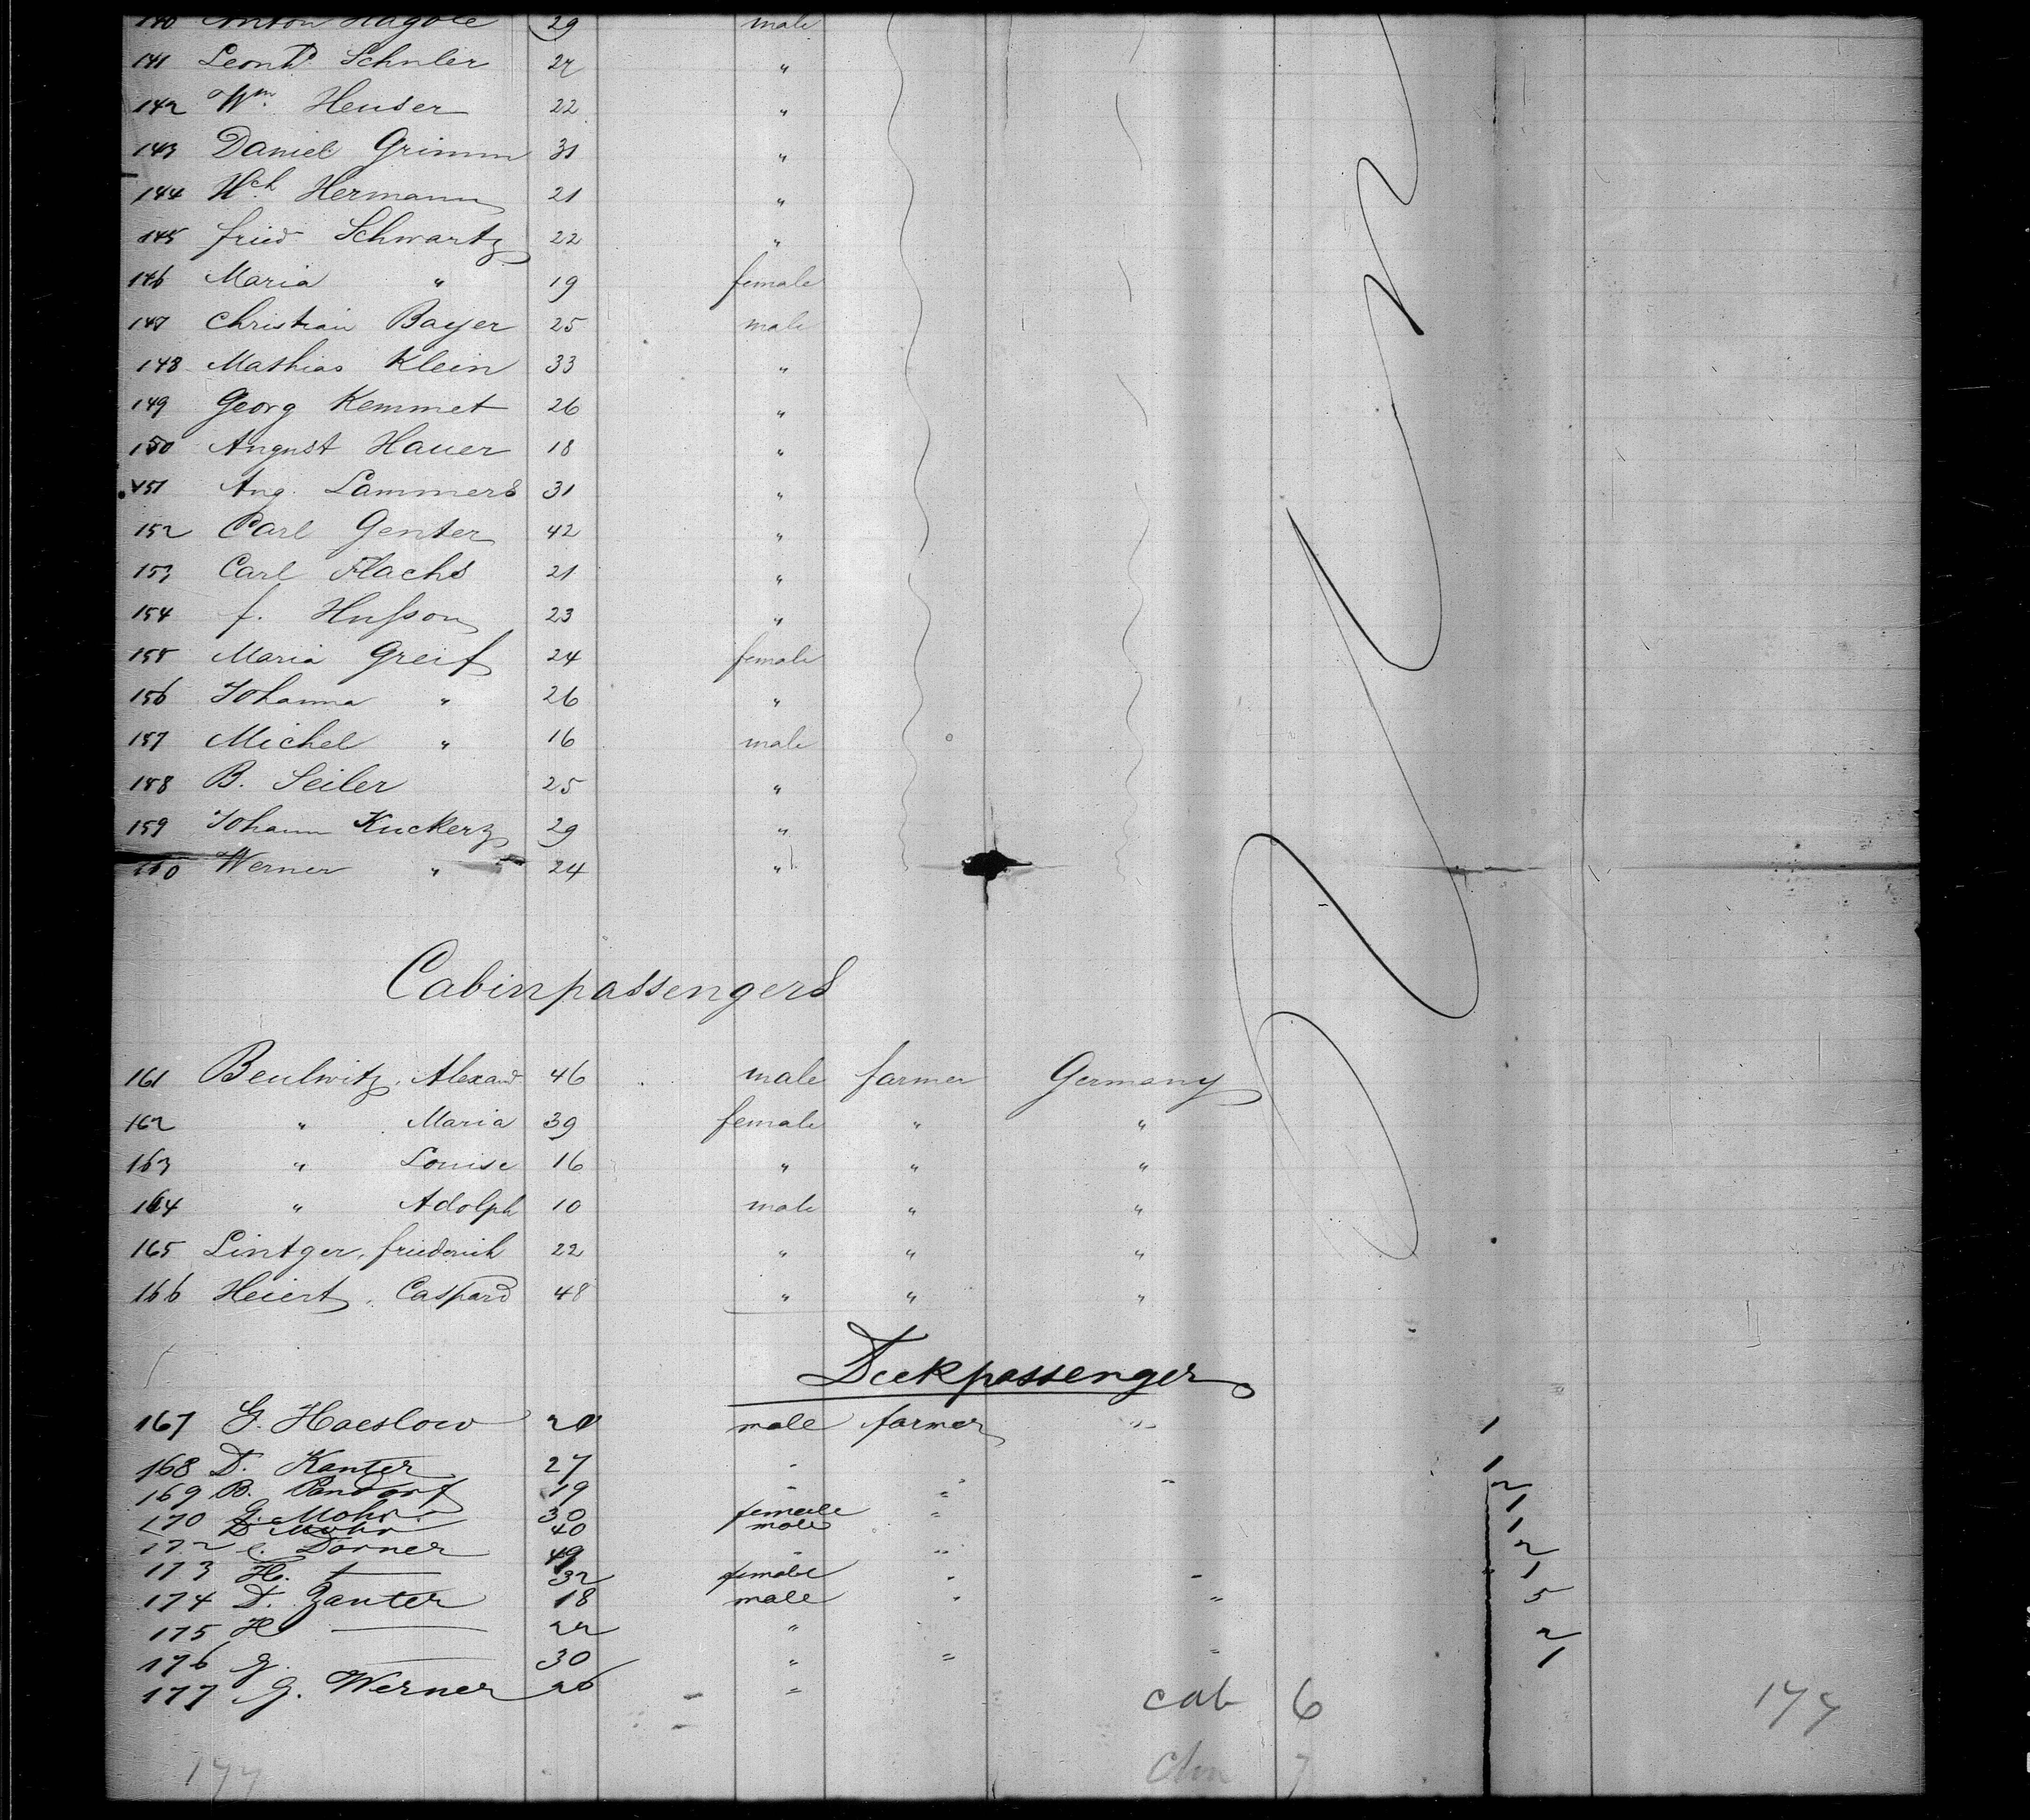 140 Anton Hagole 29 male
141 Leonhd. Schuler 27 "
142 Wm. Heuser 22 "
143 Daniel Grimm 31 "
144 Hch. Hermann 21 "
145 Fried Schwartz 22 "
146 Maria " 19 female
147 Christian Bayer 25 male
148 Mathias Klein 33 "
149 Georg Kemmet 26 "
150 August Hauer 18 "
151 Aug. Lammers 31 "
152 Carl Genter 42 "
153 Carl Flachs 21 "
154 F. Husson 23 "
155 Maria Greif 24 female
156 Johanna " 26 "
157 Michel " 16 male
158 B. Seiler 25 "
159 Johann Kuckerz 29 "
160 Werner " 24 "
Cabinpassengers
161 Beulwitz, Alexand. 46 male farmer Germany
162 " Maria 39 female " "
163 " Louise 16 " " "
164 " Adolph 10 male " "
165 Lintger, Friederich 22 " " "
166 Heiert, Caspard 48 " " "
Deckpassenger
167 G. Haeslow 20 male farmer " 1
168 D. Kanter 27 " 1
169 B. Pandorf 19 " " " 2
170 G. Mohr 30 female " 1
D Mohr 40 male 1
172 C. Dorner 49 " " 2
173 H. — 32 female " " 1
174 D. Zanter 18 male " " 5
175 H — 22 " 2
176 G. — 30 " " " 1
177 G. Werner 26 " "
cab 6
177
177
7